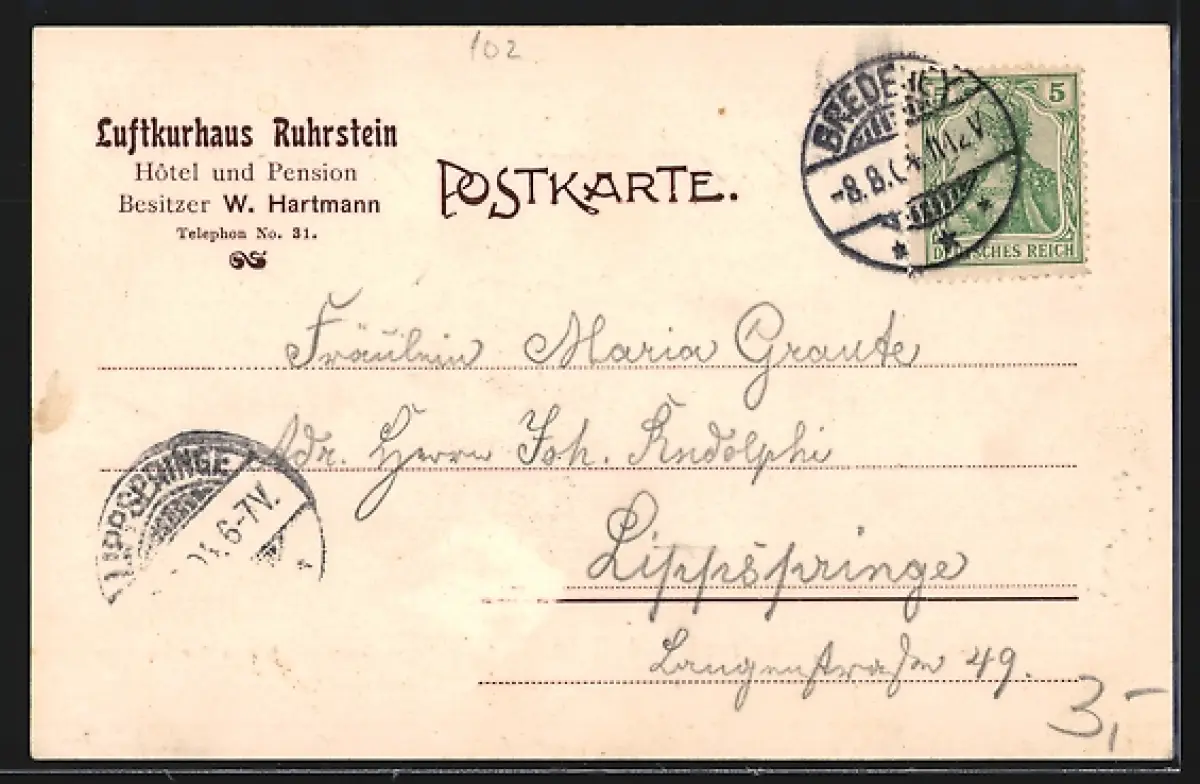 102
Luftkurhaus Ruhrstein
Hôtel und Pension
Besitzer W. Hartmann
Telephon No. 31.
POSTKARTE.
BREDENEY
-8.8. 11-12.V.
5
DEUTSCHES REICH
Fräulein Maria Graute
Adr. Herrn Joh. Rudolphi
LIPPSPRINGE
6-7V.
Lippspringe
Langenstraße 49.
3,-